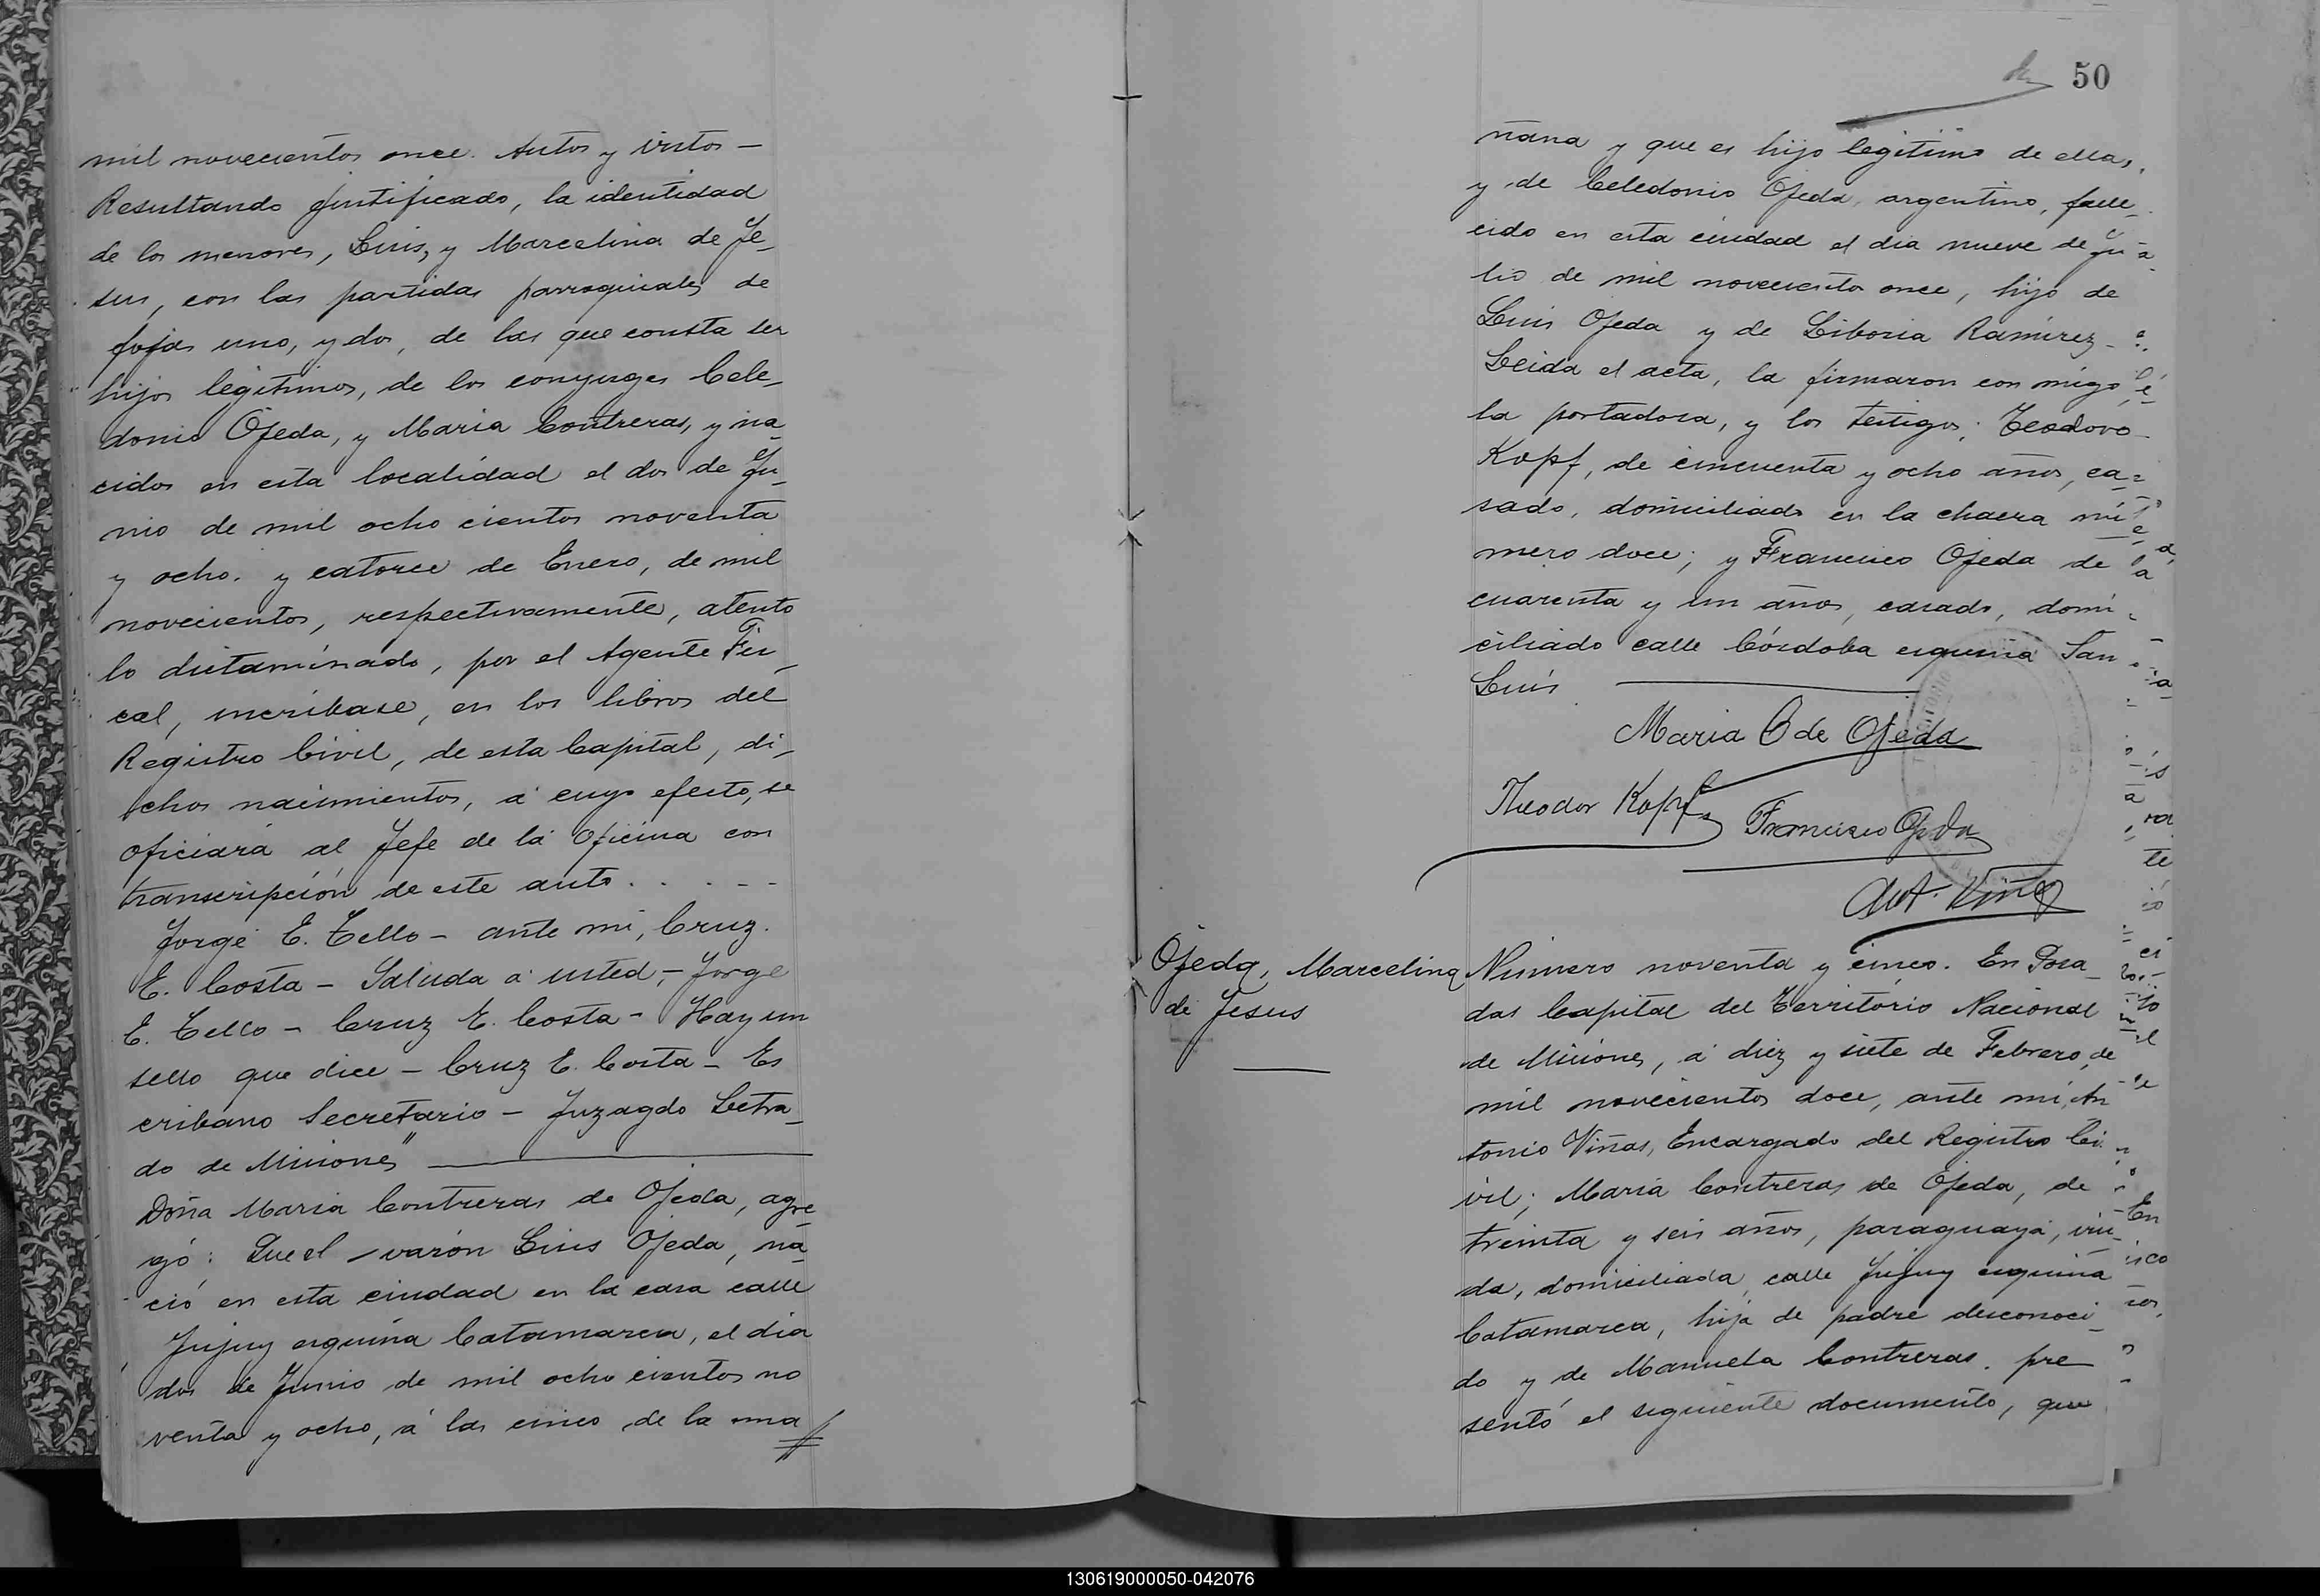 mil novecientos once. Autos y vistos —
Resultando justificado, la identidad
de los menores, Luis, y Marcelina de Je-
sus, con las partidas parroquiales de
fojas uno, y dos, de las que consta ser
hijos legitimos, de los conyuges Cele-
donio Ojeda, y Maria Contreras, y na-
cidos en esta localidad el dos de Ju-
nio de mil ocho cientos noventa
y ocho. y catorce de Enero, de mil
novecientos, respectivamente, atento
lo dictaminado, por el Agente Fis-
cal, inscribase, en los libros del
Registro Civil, de esta Capital, di-
chos nacimientos, á cuyo efecto, se
oficiará al Jefe de la Oficina con
transcripción de este auto . . . - -
Jorge E. Tello - ante mi, Cruz.
E. Costa - Saluda a usted, - Jorge
E. Tello - Cruz E. Costa - Hay un
sello que dice - Cruz E. Costa - Es
cribano Secretario - Juzagdo Letra-
do de Misiones"
Doña Maria Contreras de Ojeda, agre-
gó: Que el varón Luis Ojeda, na-
ció en esta ciudad en la casa calle
Jujuy esquina Catamarca, el dia
dos de Junio de mil ocho cientos no
venta y ocho, á las cinco de la ma
50
ñana y que es hijo legitimo de ellas,
y de Celedonio Ojeda, argentino, falle-
cido en esta ciudad el dia nueve de Ju-
lio de mil novecientos once, hijo de
Luis Ojeda y de Liboria Ramirez -
Leida el acta, la firmaron con migo
la portadora, y los testigos: Teodoro
Kopf, de cincuenta y ocho años, ca-
sado, domiciliado en la chacra nú-
mero doce; y Francisco Ojeda de
cuarenta y un años, casado, domi-
ciliado calle Córdoba esquina San
Luis
Maria C de Ojeda
Theodor Kopf
Francisco Ojeda
Ant. Viñas
Ojeda, Marcelina
de Jesus
Número noventa y cinco. En Posa-
das Capital del Territorio Nacional
de Misiones, á diez y siete de Febrero de
mil novecientos doce, ante mi, An
tonio Viñas, Encargado del Registro Ci-
vil; Maria Contreras de Ojeda, de
treinta y seis años, paraguaya, viu-
da, domiciliada calle Jujuy esquina
Catamarca, hija de padre desconoci-
do y de Manuela Contreras. pre
sentó el siguiente documento, que
130619000050-042076